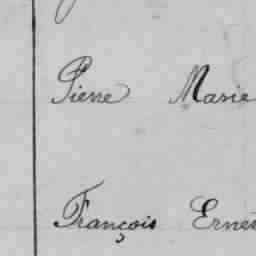 Pierre Marie
François Ernest